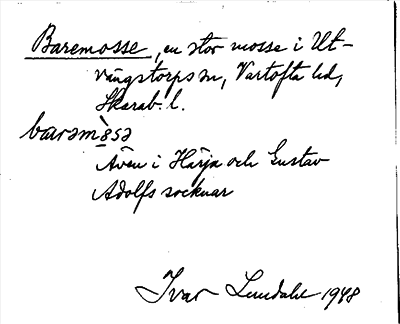 Baremosse, en stor mosse i Ut-
vängstorps sn, Vartofta hd,
Skarab. l.
barəmòsə
Även i Härja och Gustav
Adolfs socknar
Ivar Lundahl 1948